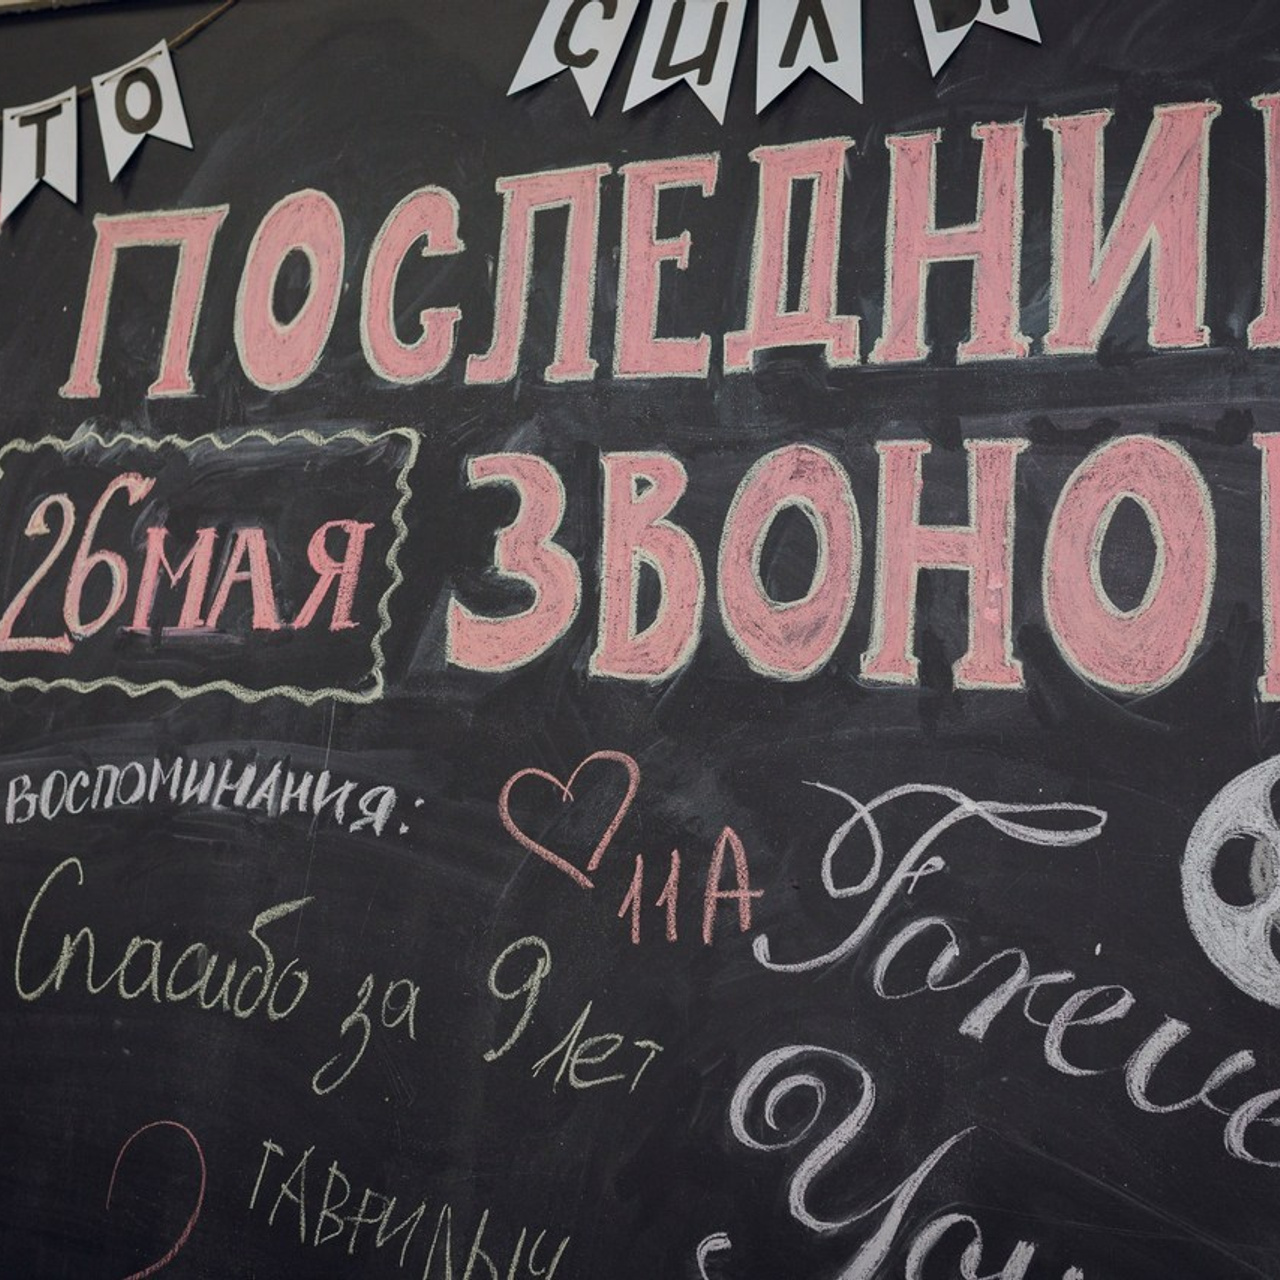 ТО СИЛЫ
ПОСЛЕДНИ
26 МАЯ
ЗВОНО
ВОСПОМИНАНИЯ:
11А
Спасибо за 9 лет
Foreve
You
ГАВРИЛЫЧ